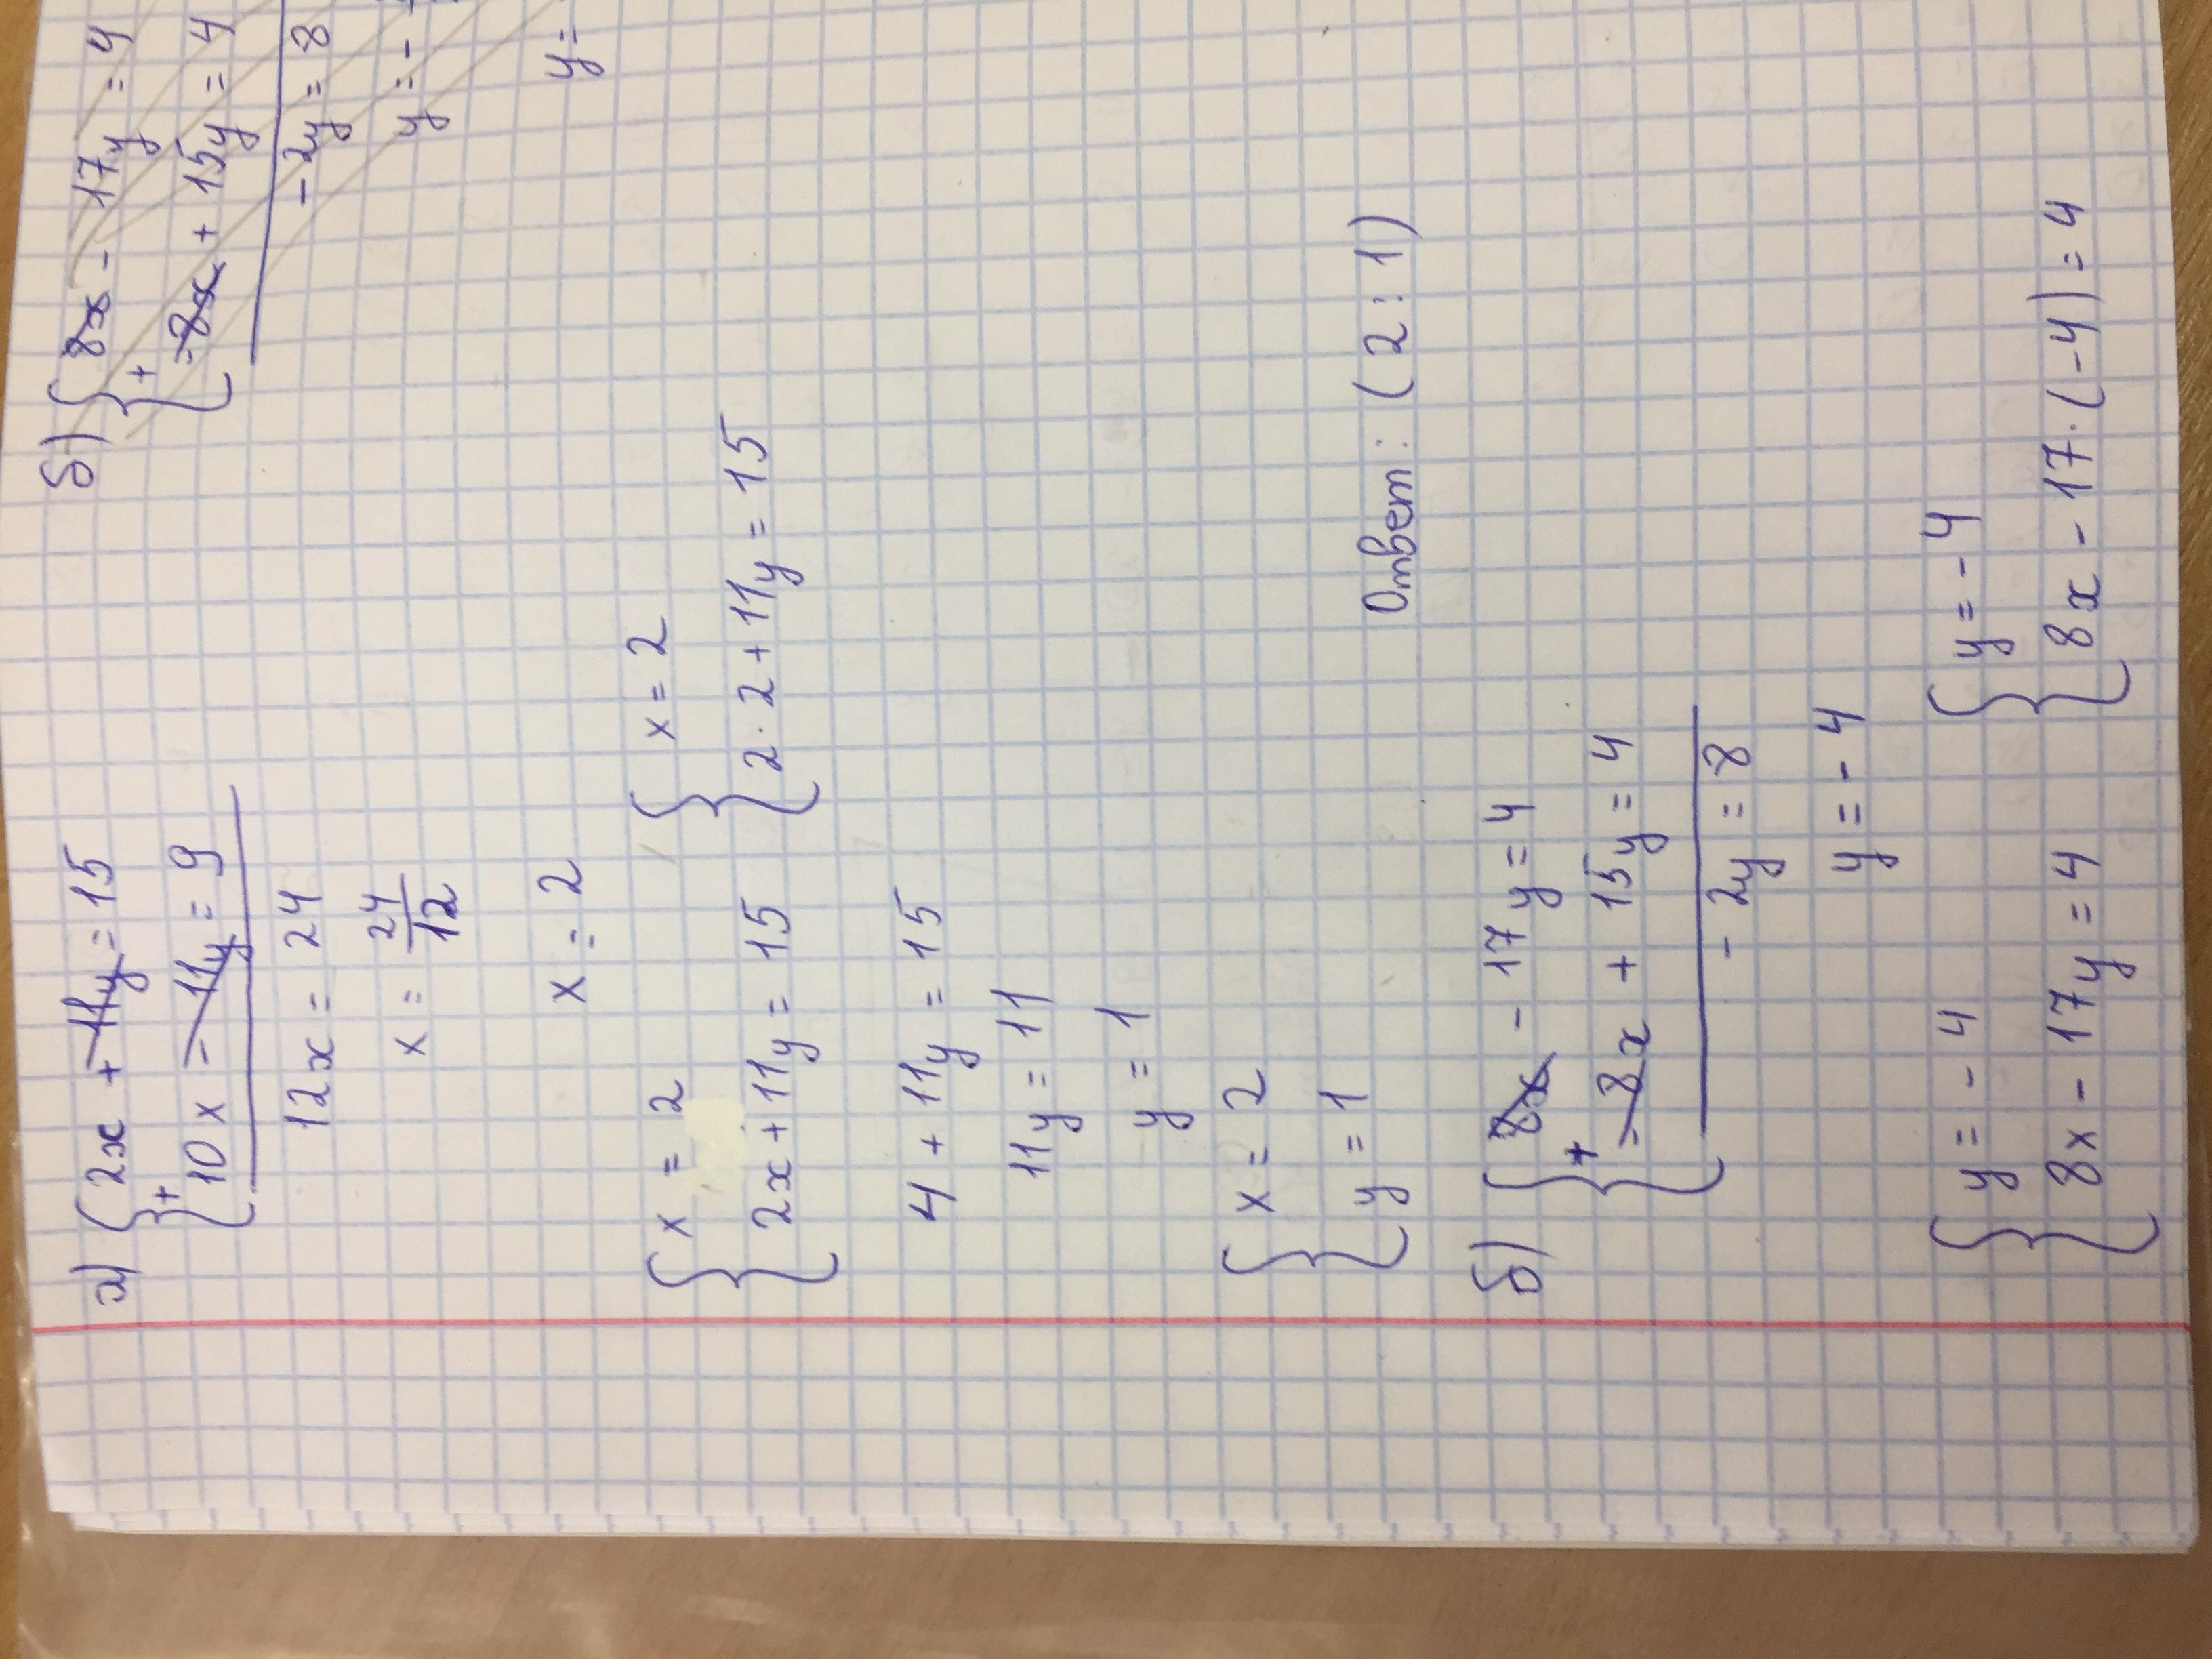 а) { 2x + 11y = 15
+ 10x - 11y = 9
12x = 24
x = 24/12
x = 2
{ x = 2
2x + 11y = 15
{ x = 2
2 · 2 + 11y = 15
4 + 11y = 15
11y = 11
y = 1
{ x = 2
y = 1
Ответ: (2 : 1)
б) { 8x - 17y = 4
+ -8x + 15y = 4
-2y = 8
y = -4
{ y = -4
8x - 17y = 4
{ y = -4
8x - 17 · (-4) = 4
б) { 8x - 17y = 4
+ -8x + 15y = 4
-2y = 8
y = -
y =